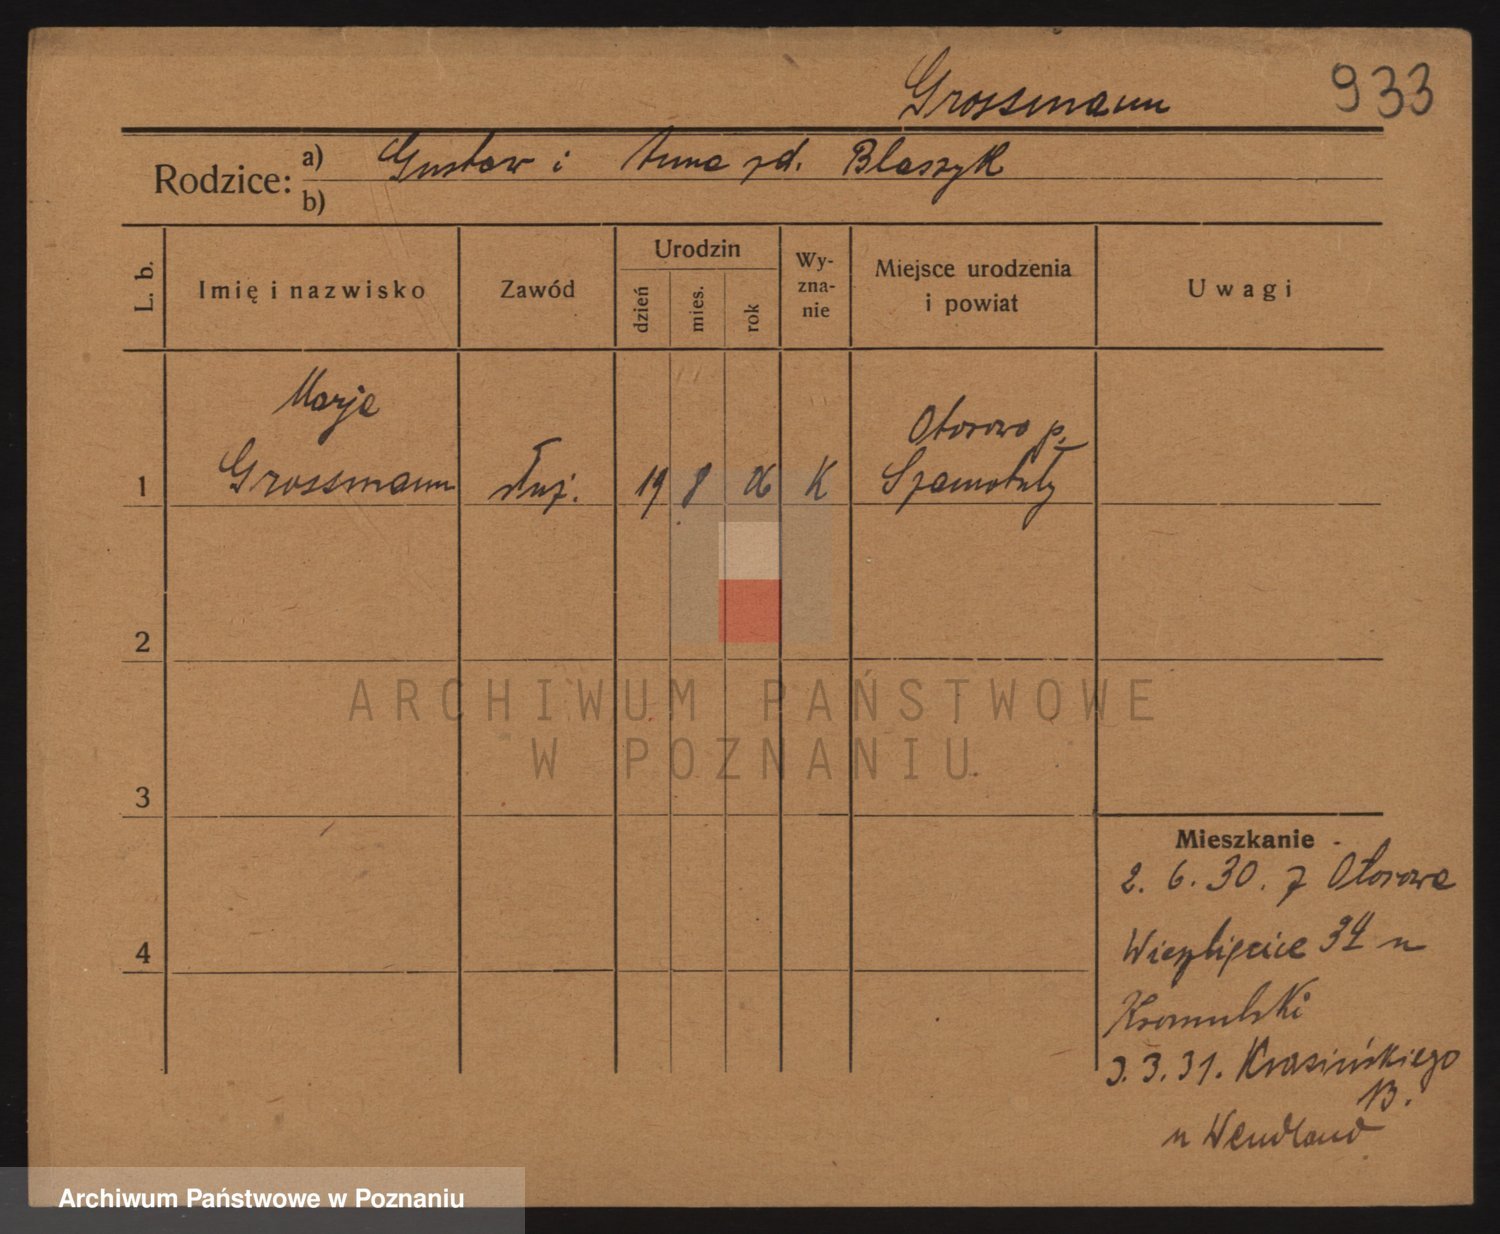 Grossmann 933
Rodzice: a) Gustaw i Anna zd. Blaszyk
b)
L. b. Imię i nazwisko Zawód Urodzin dzień mies. rok Wy-zna-nie Miejsce urodzenia i powiat Uwagi
Marja
Grossmann
1 służ. 19 8 06 K Otorowo p.
Szamotuły
2
3
4
ARCHIWUM PAŃSTWOWE
W POZNANIU
Mieszkanie
2. 6. 30. z Otorowa
34 u
3. 3. 31. Krasińskiego
13.
u Wendland
Archiwum Państwowe w Poznaniu